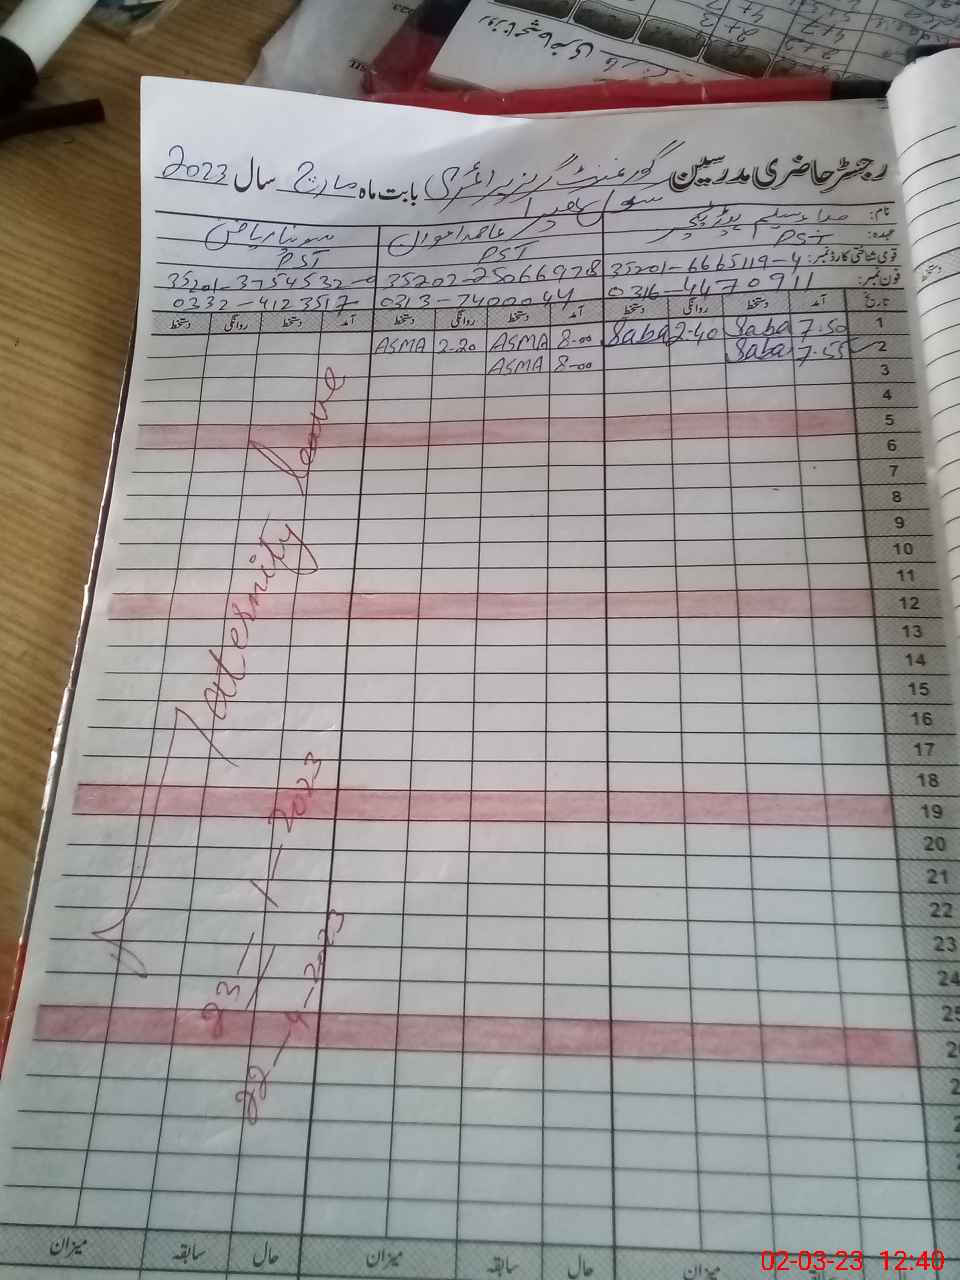 رجسٹر حاضری مدرسین گورنمنٹ گرلز پرائمری سکول بابت ماہ مارچ سال 2023
نام: صباء سلیم عاصمہ سونیا ریاض
عہدہ: PST PST PST
قومی شناختی کارڈ نمبر: 35201-6665119-4 35202-25066978 35201-3754532-0
فون نمبر: 0316-4470911 0313-7400044 0332-4123517
تاریخ آمد دستخط روانگی دستخط آمد دستخط روانگی دستخط آمد دستخط روانگی دستخط
1 7.50 Saba 2.40 Saba 8-00 ASMA 2-20 ASMA
2 7.55 Saba 8-00 ASMA
3
4
5
6
7
8
9
10
11
12
13
14
15
16
17
18
19
20
21
22
23
24
25
Maternity leave
23-1-2023
22-4-2023
میزان حال سابقہ میزان حال سابقہ میزان
02-03-23 12:40